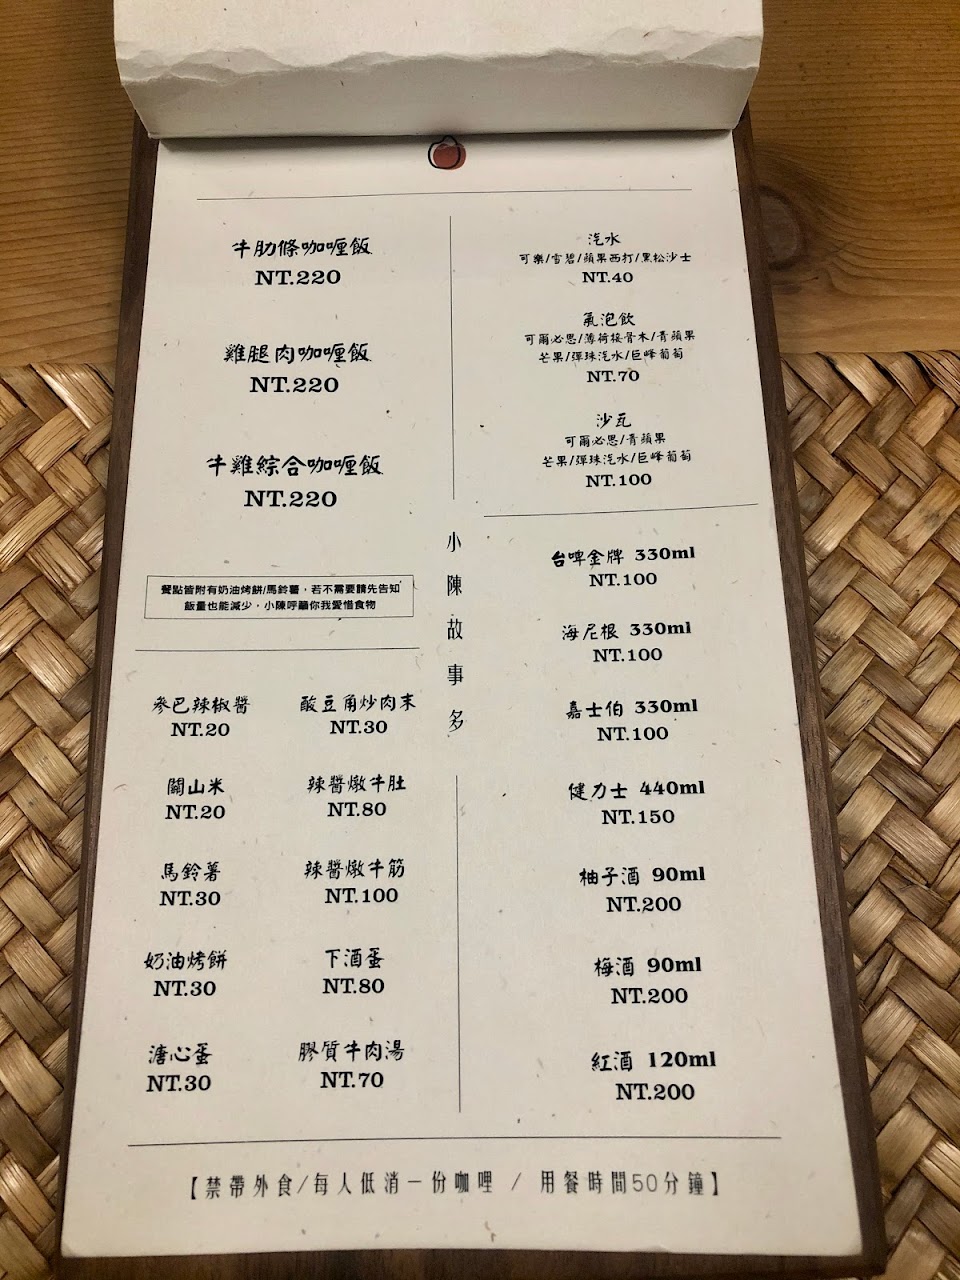 牛肋條咖喱飯
NT.220
雞腿肉咖喱飯
NT.220
牛雞綜合咖喱飯
NT.220
餐點皆附有奶油烤餅/馬鈴薯，若不需要請先告知
飯量也能減少，小陳呼籲你我愛惜食物
參巴辣椒醬
NT.20
關山米
NT.20
馬鈴薯
NT.30
奶油烤餅
NT.30
溏心蛋
NT.30
酸豆角炒肉末
NT.30
辣醬燉牛肚
NT.80
辣醬燉牛筋
NT.100
下酒蛋
NT.80
膠質牛肉湯
NT.70
小陳故事多
汽水
可樂/雪碧/蘋果西打/黑松沙士
NT.40
氣泡飲
可爾必思/薄荷接骨木/青蘋果
芒果/彈珠汽水/巨峰葡萄
NT.70
沙瓦
可爾必思/青蘋果
芒果/彈珠汽水/巨峰葡萄
NT.100
台啤金牌 330ml
NT.100
海尼根 330ml
NT.100
嘉士伯 330ml
NT.100
健力士 440ml
NT.150
柚子酒 90ml
NT.200
梅酒 90ml
NT.200
紅酒 120ml
NT.200
【禁帶外食/每人低消一份咖哩 / 用餐時間50分鐘】